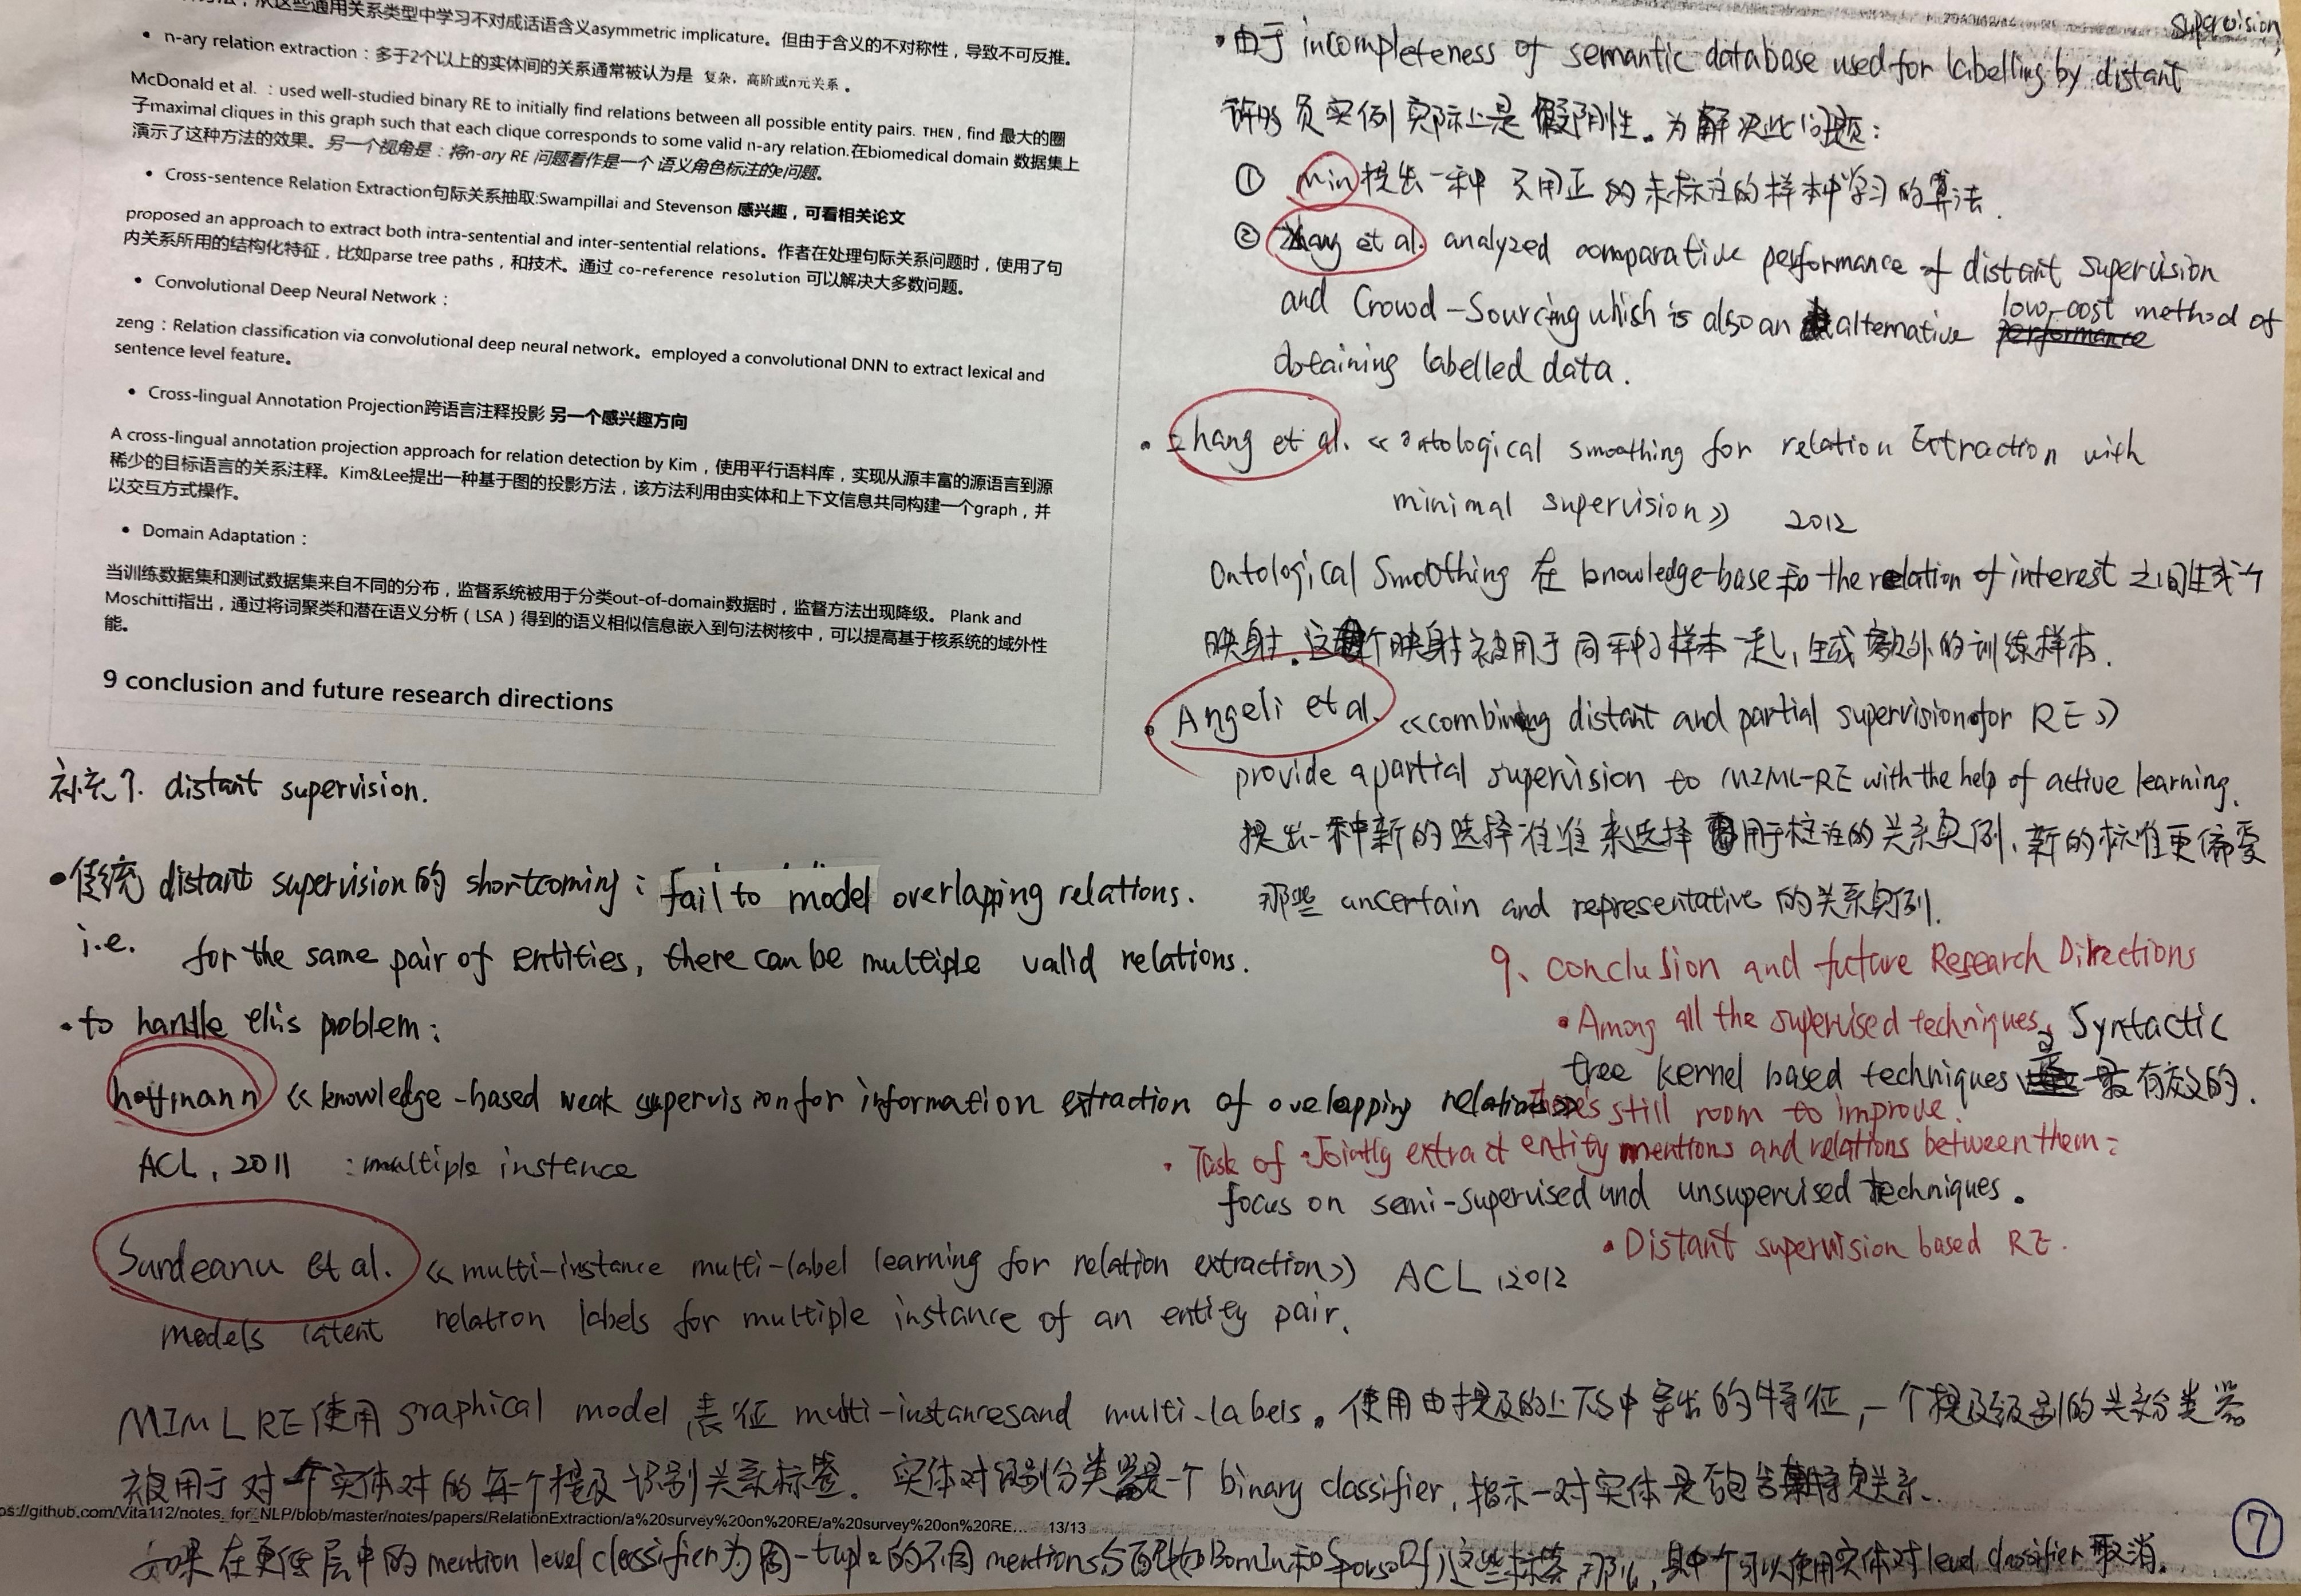 从这些通用关系类型中学习不对成话语含义asymmetric implicature。但由于含义的不对称性，导致不可反推。
• n-ary relation extraction：多于2个以上的实体间的关系通常被认为是 复杂，高阶或n元关系 。
McDonald et al. ：used well-studied binary RE to initially find relations between all possible entity pairs. THEN，find 最大的圈
子maximal cliques in this graph such that each clique corresponds to some valid n-ary relation.在biomedical domain 数据集上
演示了这种方法的效果。另一个视角是：将n-ary RE 问题看作是一个 语义角色标注的e问题。
• Cross-sentence Relation Extraction句际关系抽取:Swampillai and Stevenson 感兴趣，可看相关论文
proposed an approach to extract both intra-sentential and inter-sentential relations。作者在处理句际关系问题时，使用了句
内关系所用的结构化特征，比如parse tree paths，和技术。通过 co-reference resolution 可以解决大多数问题。
• Convolutional Deep Neural Network：
zeng：Relation classification via convolutional deep neural network。employed a convolutional DNN to extract lexical and
sentence level feature。
• Cross-lingual Annotation Projection跨语言注释投影 另一个感兴趣方向
A cross-lingual annotation projection approach for relation detection by Kim，使用平行语料库，实现从源丰富的源语言到源
稀少的目标语言的关系注释。Kim&Lee提出一种基于图的投影方法，该方法利用由实体和上下文信息共同构建一个graph，并
以交互方式操作。
• Domain Adaptation：
当训练数据集和测试数据集来自不同的分布，监督系统被用于分类out-of-domain数据时，监督方法出现降级。 Plank and
Moschitti指出，通过将词聚类和潜在语义分析（LSA）得到的语义相似信息嵌入到句法树核中，可以提高基于核系统的域外性
能。
9 conclusion and future research directions
补充7. distant supervision.
•传统 distant supervision的 shortcoming：fail to model overlapping relations.
i.e. for the same pair of entities, there can be multiple valid relations.
•to handle this problem：
hoffmann 《knowledge-based weak supervision for information extraction of overlapping relations》
ACL, 2011 : multiple instence
Surdeanu et al. 《multi-instance multi-label learning for relation extraction》 ACL, 2012
models latent relation labels for multiple instance of an entity pair.
MIML RE使用 graphical model 表征 multi-instances and multi-labels。使用由提及的上下文中导出的特征, 一个提及级别的关系分类器
被用于对一个实体对的每个提及识别关系标签。实体对级别分类器是一个 binary classifier, 指示一对实体是否包含某特定关系.
os://github.com/Vita112/notes_for_NLP/blob/master/notes/papers/RelationExtraction/a%20survey%20on%20RE/a%20survey%20on%20RE... 13/13
如果在更低层中的 mention level classifier为同一tuple的不同mentions分配如BornIn和SpouseOf)这些标签, 那么, 其中一个可以使用实体对level classifier取消.
supervision,
•由于 incompleteness of semantic database used for labelling by distant
许多负实例实际上是假阴性。为解决此问题：
① min提出一种只用正的未标注的样本中学习的算法.
② zhang et al. analyzed comparative performance of distant supervision
and Crowd-Sourcing which is also an alternative low-cost method of
performance
obtaining labelled data.
• zhang et al. 《ontological smoothing for relation Extraction with
minimal supervision》 2012
Ontological Smoothing 在 knowledge-base和 the relation of interest 之间生成一个
映射。这个映射被用于同种子样本一起, 生成额外的训练样本.
• Angeli et al. 《combining distant and partial supervision for RE》
provide a partial supervision to MIML-RE with the help of active learning.
提出一种新的选择准准来选择用于标注的关系实例, 新的标准更偏爱
那些 uncertain and representative 的关系实例.
9、conclusion and future Research Directions
• Among all the supervised techniques, Syntactic
tree kernel based techniques 是最有效的.
There's still room to improve.
• Task of Jointly extract entity mentions and relations between them:
focus on semi-supervised and unsupervised techniques。
• Distant supervision based RE.
⑦